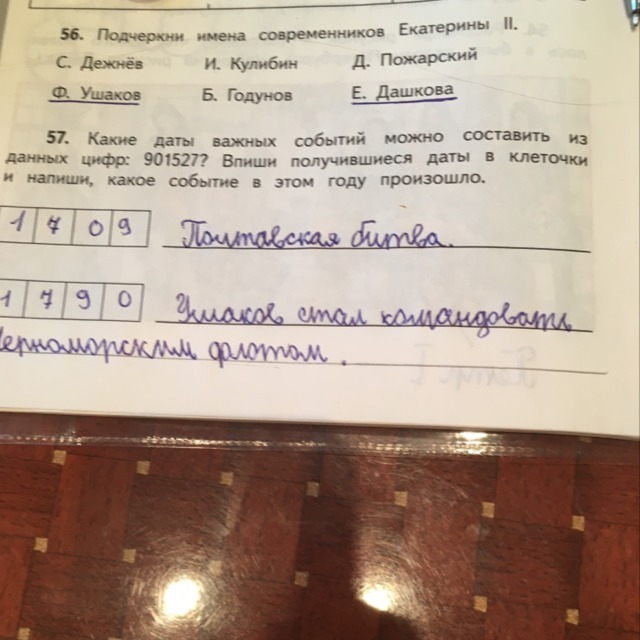 56. Подчеркни имена современников Екатерины II.
С. Дежнёв И. Кулибин Д. Пожарский
Ф. Ушаков Б. Годунов Е. Дашкова
57. Какие даты важных событий можно составить из
данных цифр: 901527? Впиши получившиеся даты в клеточки
и напиши, какое событие в этом году произошло.
1 7 0 9 Полтавская битва.
1 7 9 0 Ушаков стал командовать
Черноморским флотом.